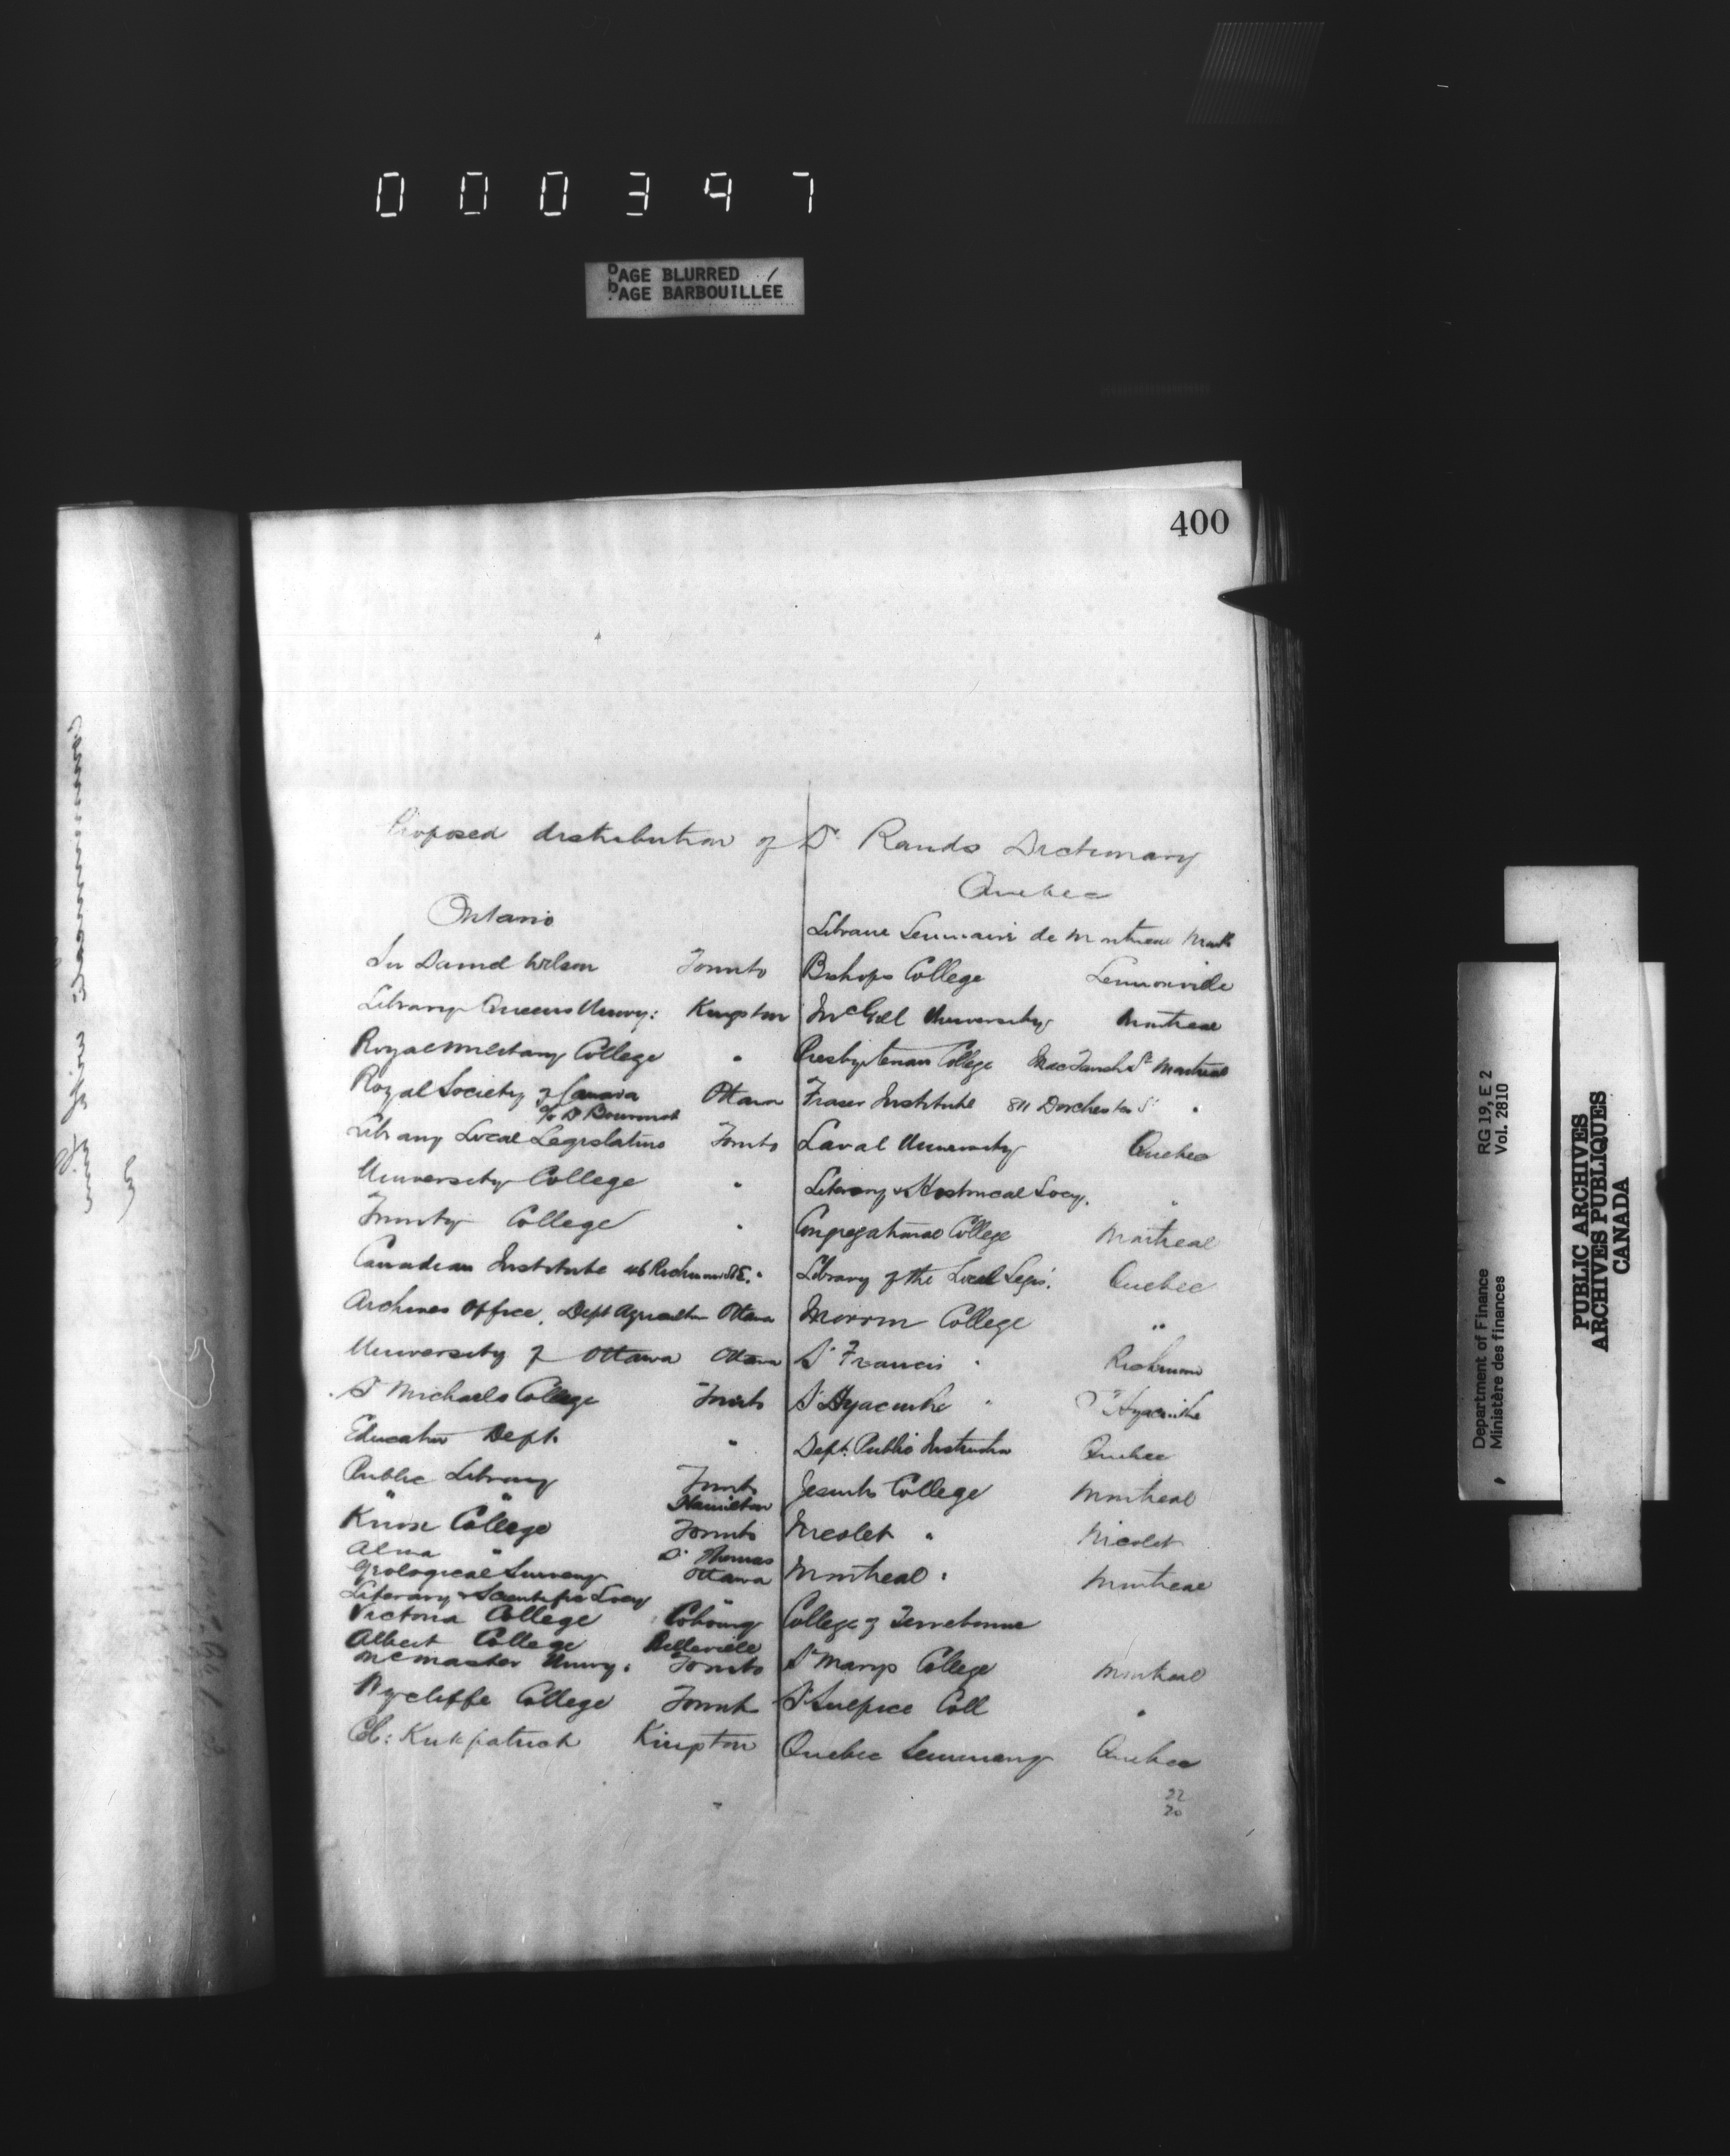 000397
PAGE BLURRED
PAGE BARBOUILLÉE
400
Proposed distribution of Dr Rands Dictionary
Ontario
Sir Daniel Wilson Toronto
Library Queens Univy: Kingston
Royal Military College "
Royal Society of Canada Ottawa
c/o Dr Bourinot
Library Local Legislature Toronto
University College "
Trinity College "
Canadian Institute 46 Richmond St E. "
Archives Office, Dept Agriculture Ottawa
University of Ottawa Ottawa
St Michaels College Toronto
Education Dept. "
Public Library Toronto
" " Hamilton
Knox College Toronto
Alma " St Thomas
Geological Survey Ottawa
Literary & Scientific Socy "
Victoria College Cobourg
Albert College Belleville
McMaster Univy. Toronto
Wycliffe College Toronto
Col: Kirkpatrick Kingston
Quebec
Seminaire de Montreal
Bishops College Lennoxville
McGill University Montreal
Presbyterian College MacTavish St Montreal
Fraser Institute 811 Dorchester St "
Laval University Quebec
Literary & Historical Socy. "
Congregational College Montreal
Library of the Local Legis: Quebec
Morrin College "
St Francis " Richmond
St Hyacinthe " St Hyacinthe
Dept. Public Instruction Quebec
Jesuits College Montreal
Nicolet " Nicolet
Montreal " Montreal
College of Terrebonne
St Marys College Montreal
St Sulpice Coll "
Quebec Seminary Quebec
22
20
Department of Finance RG 19, E 2
Ministère des finances Vol. 2810
PUBLIC ARCHIVES
ARCHIVES PUBLIQUES
CANADA